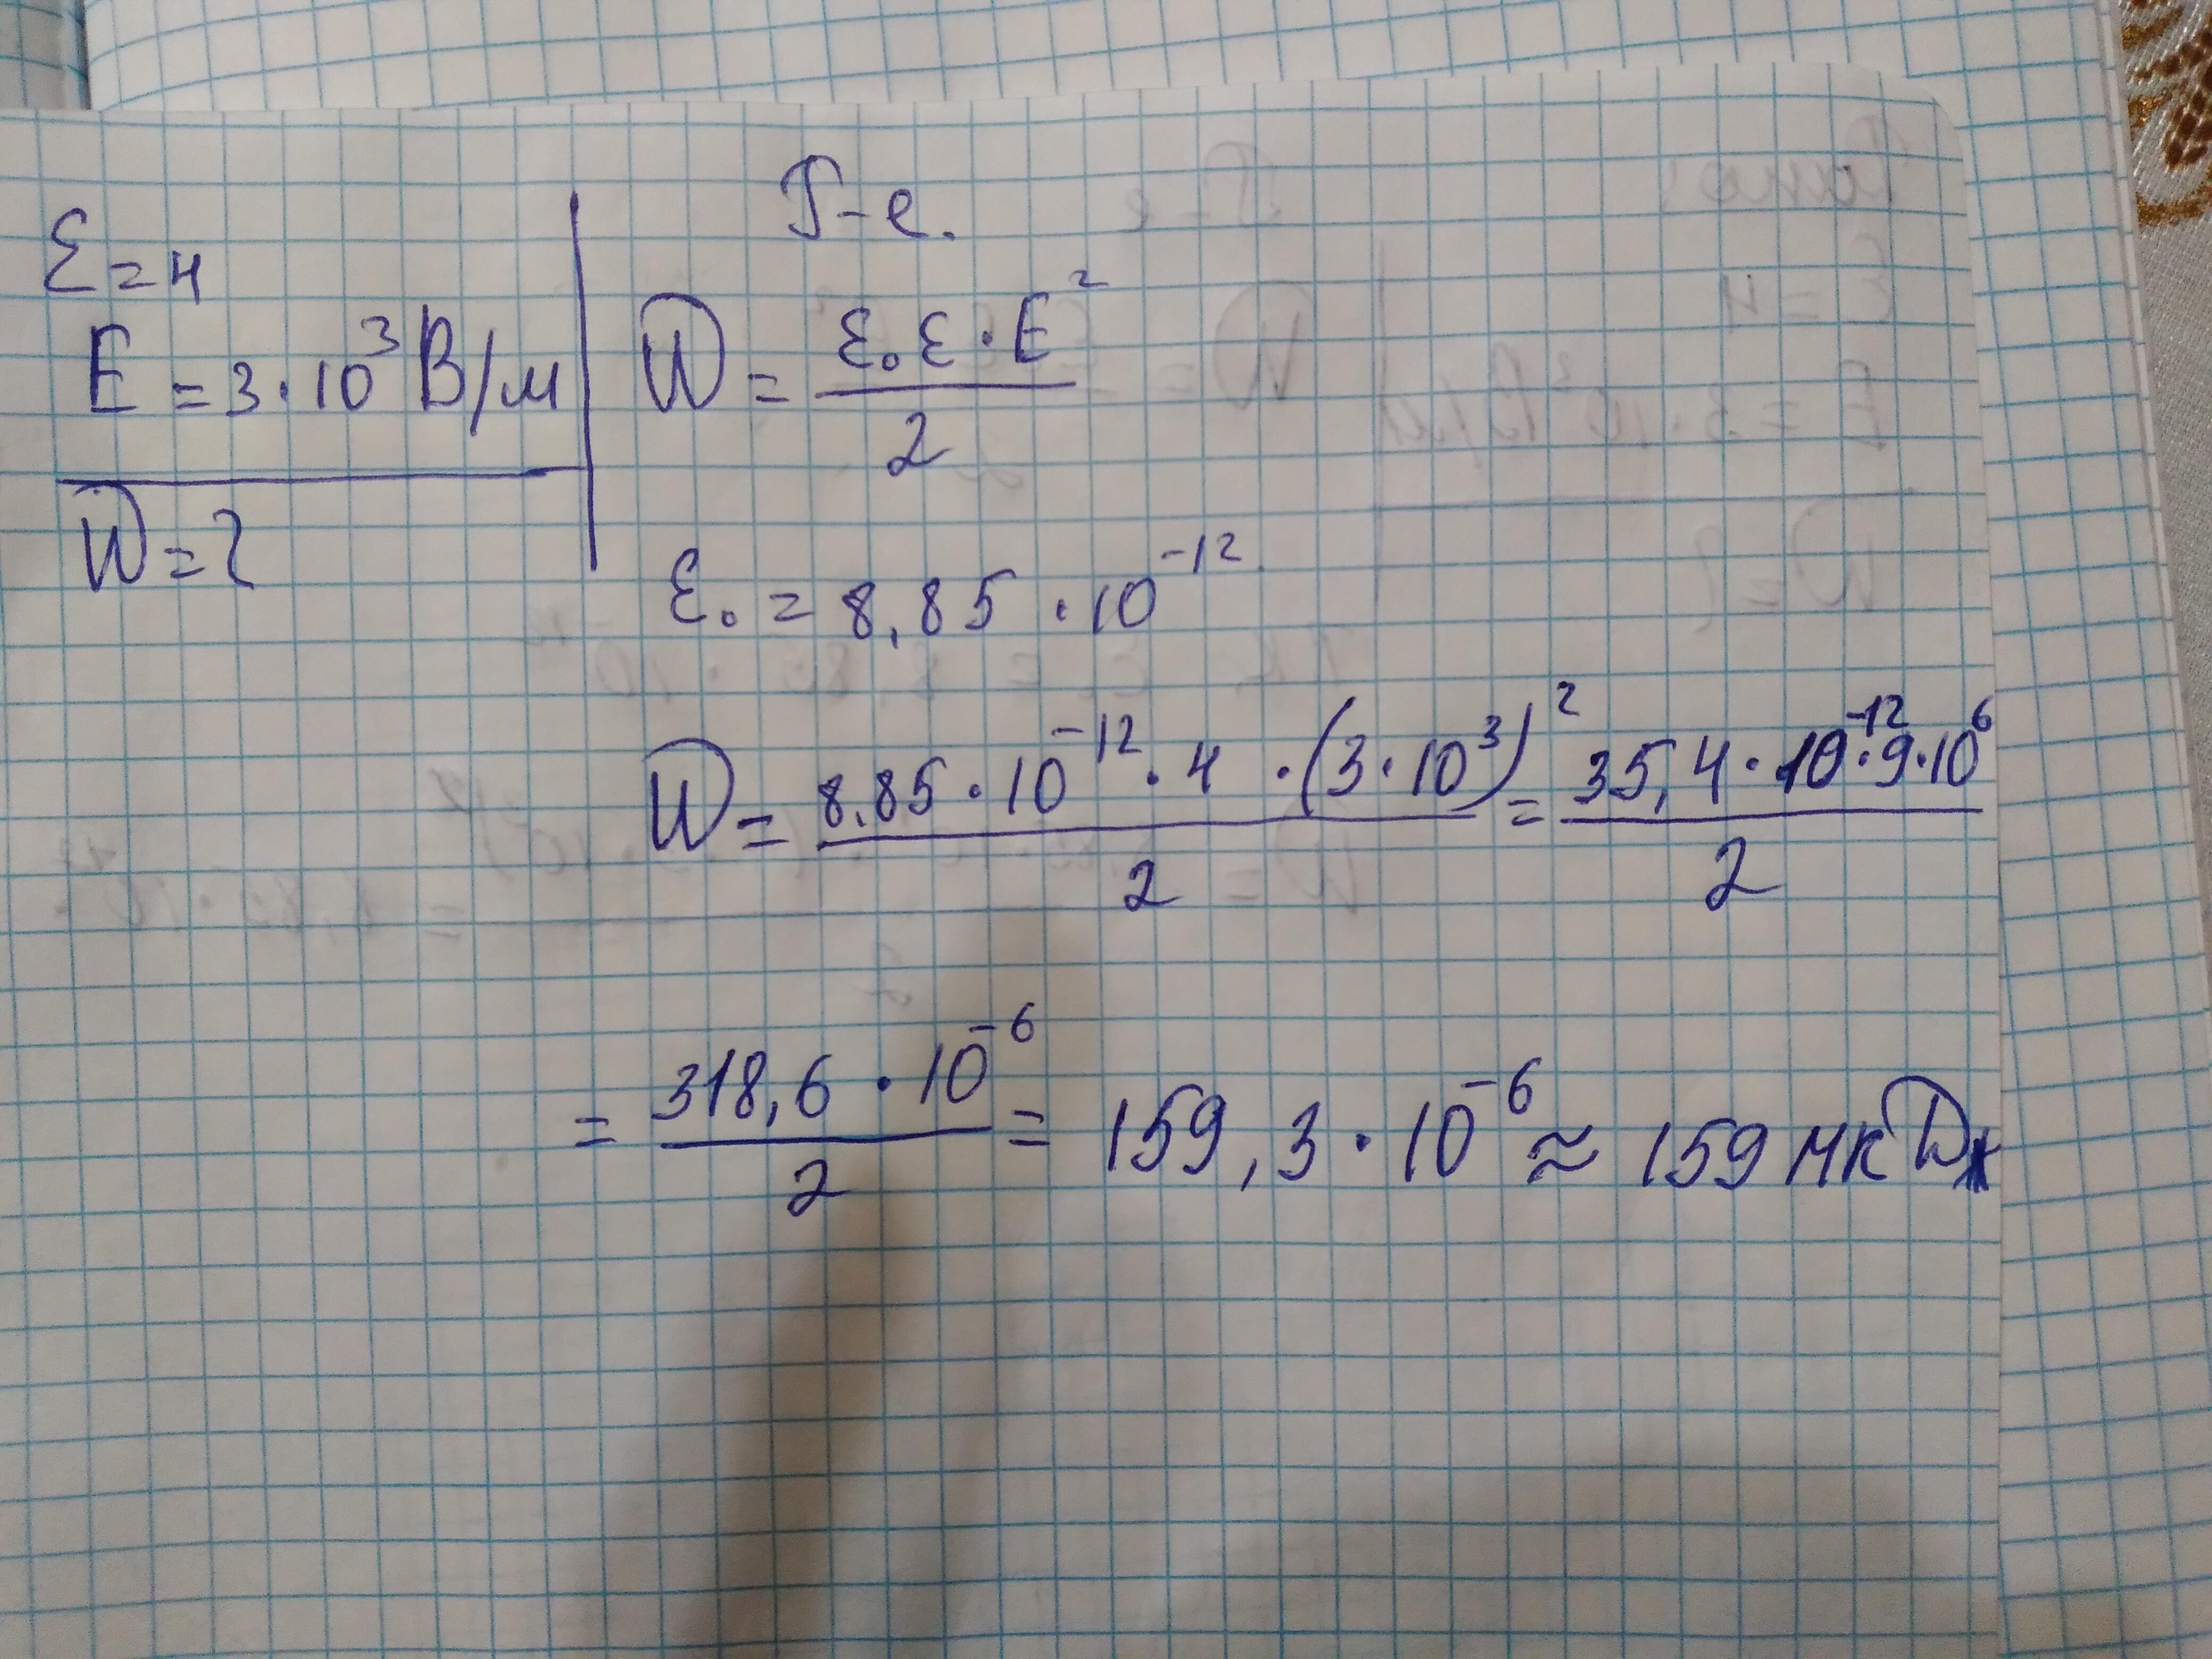 ε = 4
E = 3·10³ В/м
W = ?
Р-е.
W = ε₀ε·E² / 2
ε₀ = 8,85 ·10⁻¹²
W = 8,85·10⁻¹²·4·(3·10³)² / 2 = 35,4·10⁻¹²·9·10⁶ / 2
= 318,6·10⁻⁶ / 2 = 159,3·10⁻⁶ ≈ 159 мкДж